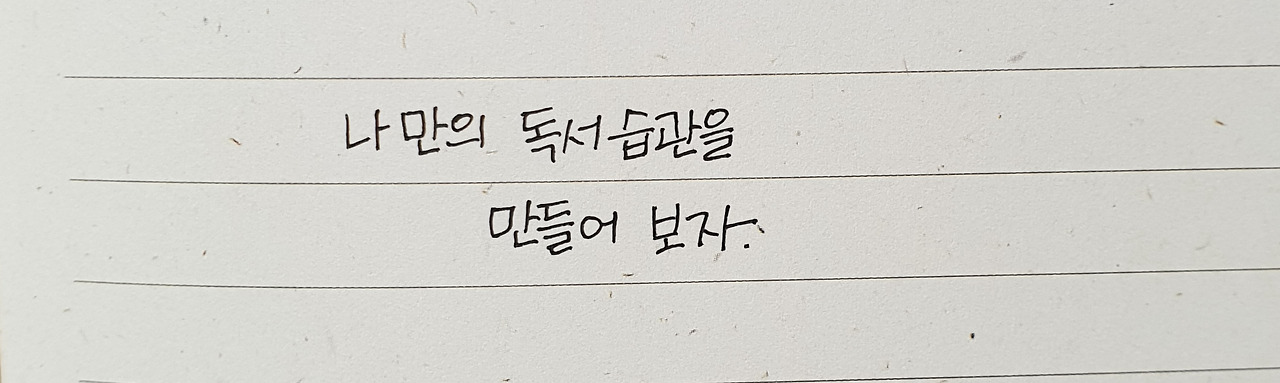 나만의 독서습관을
만들어 보자.